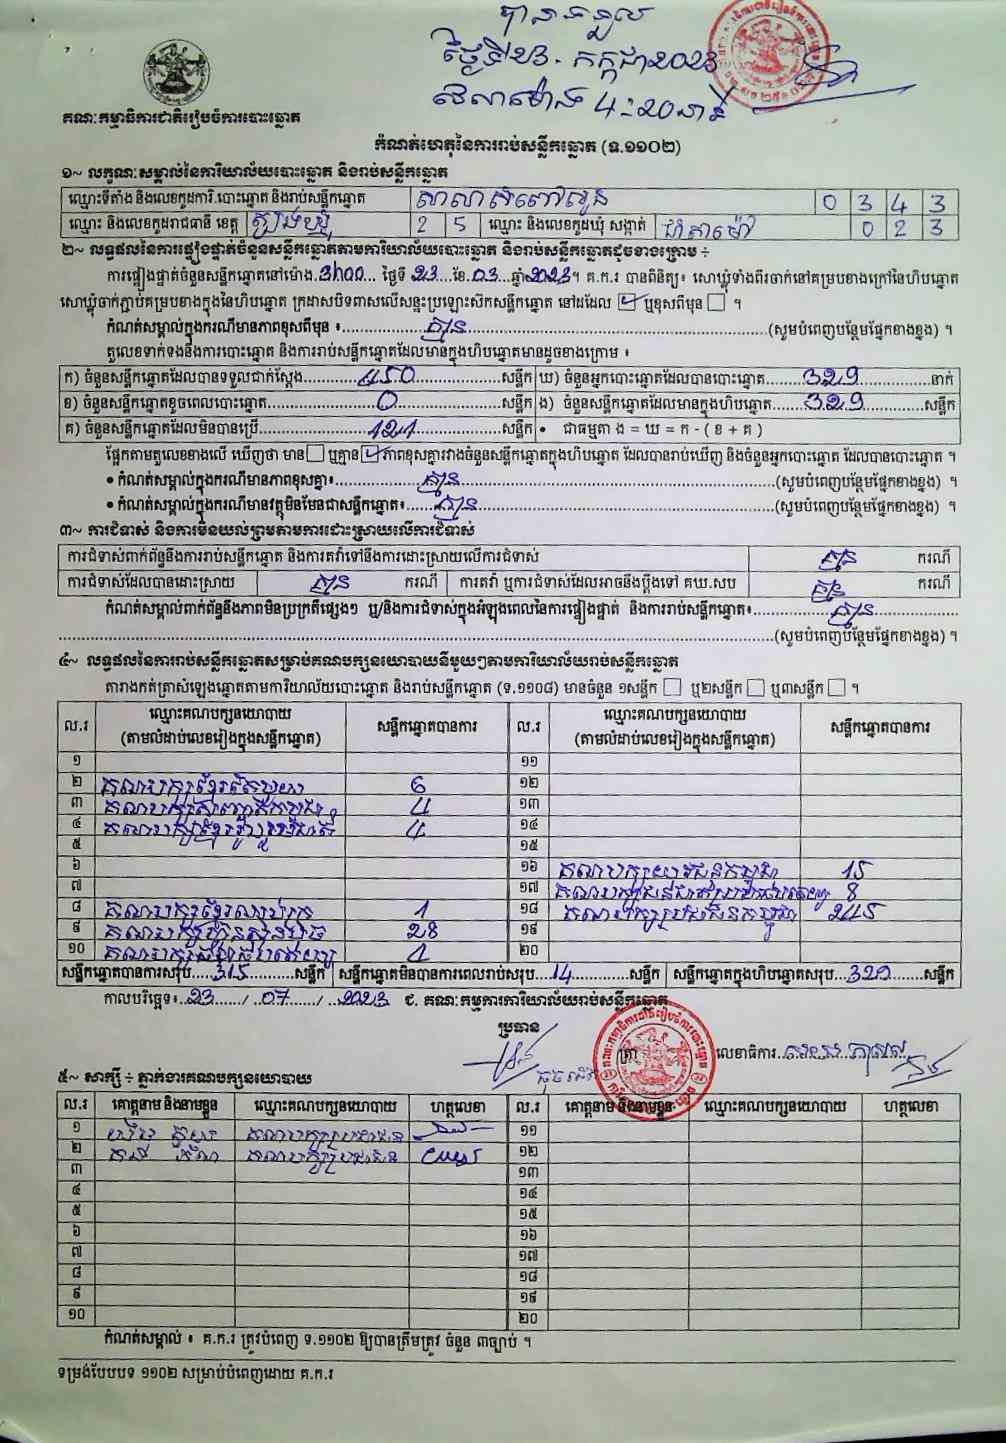 បានទទួល
ថ្ងៃទី23 កក្កដា2023
វេលាម៉ោង 4:20នាទី
គណៈកម្មាធិការជាតិរៀបចំការបោះឆ្នោត
កំណត់ហេតុនៃការរាប់សន្លឹកឆ្នោត (ទ.១១០២)
១~ លក្ខណៈសម្គាល់នៃការិយាល័យបោះឆ្នោត និងរាប់សន្លឹកឆ្នោត
ឈ្មោះទីតាំង និងលេខកូដការិ.បោះឆ្នោត និងរាប់សន្លឹកឆ្នោត 0 3 4 3
ឈ្មោះ និងលេខកូដរាជធានី ខេត្ត ត្បូងឃ្មុំ 2 5 ឈ្មោះ និងលេខកូដឃុំ សង្កាត់ 0 2 3
២~ លទ្ធផលនៃការផ្ទៀងផ្ទាត់ចំនួនសន្លឹកឆ្នោតតាមការិយាល័យបោះឆ្នោត និងរាប់សន្លឹកឆ្នោតដូចខាងក្រោម ៖
ការផ្ទៀងផ្ទាត់ចំនួនសន្លឹកឆ្នោតនៅម៉ោង.3h00... ថ្ងៃទី.23...ខែ.03...ឆ្នាំ2023។ គ.ក.រ បានពិនិត្យ៖ សោឃ្លុំទាំងពីរចាក់នៅគម្របខាងក្រៅនៃហិបឆ្នោត
សោឃ្លុំចាក់ភ្ជាប់គម្របខាងក្នុងនៃហិបឆ្នោត ក្រដាសបិទពាសលើសន្ទះប្រឡោះសឹកសន្លឹកឆ្នោត នៅដដែល ឬខុសពីមុន ។
កំណត់សម្គាល់ក្នុងករណីមានភាពខុសពីមុន ៖ គ្មាន (សូមបំពេញបន្ថែមផ្នែកខាងខ្នង) ។
តួលេខទាក់ទងនឹងការបោះឆ្នោត និងការរាប់សន្លឹកឆ្នោតដែលមានក្នុងហិបឆ្នោតមានដូចខាងក្រោម ៖
ក) ចំនួនសន្លឹកឆ្នោតដែលបានទទួលជាក់ស្តែង 450 សន្លឹក ឃ) ចំនួនអ្នកបោះឆ្នោតដែលបានបោះឆ្នោត 329 នាក់
ខ) ចំនួនសន្លឹកឆ្នោតខូចពេលបោះឆ្នោត 0 សន្លឹក ង) ចំនួនសន្លឹកឆ្នោតដែលមានក្នុងហិបឆ្នោត 329 សន្លឹក
គ) ចំនួនសន្លឹកឆ្នោតដែលមិនបានប្រើ 121 សន្លឹក • ជាធម្មតា ង = ឃ = ក - ( ខ + គ )
ផ្អែកតាមតួលេខខាងលើ ឃើញថា មាន ឬគ្មាន ភាពខុសគ្នារវាងចំនួនសន្លឹកឆ្នោតក្នុងហិបឆ្នោត ដែលបានរាប់ឃើញ និងចំនួនអ្នកបោះឆ្នោត ដែលបានបោះឆ្នោត ។
• កំណត់សម្គាល់ក្នុងករណីមានភាពខុសគ្នា៖ គ្មាន (សូមបំពេញបន្ថែមផ្នែកខាងខ្នង) ។
• កំណត់សម្គាល់ក្នុងករណីមានវត្ថុមិនមែនជាសន្លឹកឆ្នោត៖ គ្មាន (សូមបំពេញបន្ថែមផ្នែកខាងខ្នង) ។
៣~ ការជំទាស់ និងការមិនយល់ព្រមតាមការដោះស្រាយលើការជំទាស់
ការជំទាស់ពាក់ព័ន្ធនឹងការរាប់សន្លឹកឆ្នោត និងការតវ៉ាទៅនឹងការដោះស្រាយលើការជំទាស់ គ្មាន ករណី
ការជំទាស់ដែលបានដោះស្រាយ គ្មាន ករណី ការតវ៉ា ឬការជំទាស់ដែលអាចនឹងប្តឹងទៅ គឃ.សប គ្មាន ករណី
កំណត់សម្គាល់ពាក់ព័ន្ធនឹងភាពមិនប្រក្រតីផ្សេងៗ ឬ/និងការជំទាស់ក្នុងអំឡុងពេលនៃការផ្ទៀងផ្ទាត់ និងការរាប់សន្លឹកឆ្នោត៖ គ្មាន
(សូមបំពេញបន្ថែមផ្នែកខាងខ្នង) ។
៤~ លទ្ធផលនៃការរាប់សន្លឹកឆ្នោតសម្រាប់គណបក្សនយោបាយនីមួយៗតាមការិយាល័យរាប់សន្លឹកឆ្នោត
តារាងកត់ត្រាសំឡេងឆ្នោតតាមការិយាល័យបោះឆ្នោត និងរាប់សន្លឹកឆ្នោត (ទ.១១០៨) មានចំនួន ១សន្លឹក ឬ២សន្លឹក ឬ៣សន្លឹក ។
ល.រ ឈ្មោះគណបក្សនយោបាយ (តាមលំដាប់លេខរៀងក្នុងសន្លឹកឆ្នោត) សន្លឹកឆ្នោតបានការ ល.រ ឈ្មោះគណបក្សនយោបាយ (តាមលំដាប់លេខរៀងក្នុងសន្លឹកឆ្នោត) សន្លឹកឆ្នោតបានការ
១ ១១
២ គណបក្សខ្មែរតែមួយ 6 ១២
៣ គណបក្ស 4 ១៣
៤ គណបក្ស 4 ១៤
៥ ១៥
៦ ១៦ គណបក្សយុវជនកម្ពុជា 15
៧ ១៧ គណបក្ស 8
៨ គណបក្សខ្មែរ 1 ១៨ គណបក្សប្រជាជនកម្ពុជា 245
៩ គណបក្សហ៊្វុនស៊ិនប៉ិច 28 ១៩
១០ គណបក្ស ២០
សន្លឹកឆ្នោតបានការសរុប 315 សន្លឹក សន្លឹកឆ្នោតមិនបានការពេលរាប់សរុប 14 សន្លឹក សន្លឹកឆ្នោតក្នុងហិបឆ្នោតសរុប 329 សន្លឹក
កាលបរិច្ឆេទ៖ 23 / 07 / 2023 ជ. គណៈកម្មការការិយាល័យរាប់សន្លឹកឆ្នោត
ប្រធាន ត្រា លេខាធិការ
៥~ សាក្សី ៖ ភ្នាក់ងារគណបក្សនយោបាយ
ល.រ គោត្តនាម និងនាមខ្លួន ឈ្មោះគណបក្សនយោបាយ ហត្ថលេខា ល.រ គោត្តនាម និងនាមខ្លួន ឈ្មោះគណបក្សនយោបាយ ហត្ថលេខា
១ គណបក្សប្រជាជន ១១
២ គណបក្សប្រជាជន ១២
៣ ១៣
៤ ១៤
៥ ១៥
៦ ១៦
៧ ១៧
៨ ១៨
៩ ១៩
១០ ២០
កំណត់សម្គាល់ ៖ គ.ក.រ ត្រូវបំពេញ ទ.១១០២ ឱ្យបានត្រឹមត្រូវ ចំនួន ៣ច្បាប់ ។
ទម្រង់បែបបទ ១១០២ សម្រាប់បំពេញដោយ គ.ក.រ